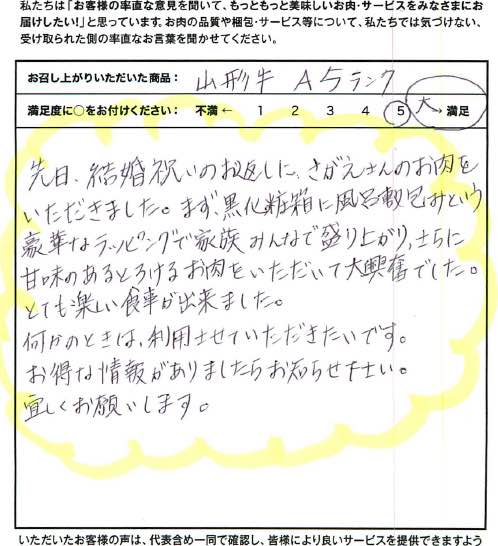 私たちは「お客様の率直な意見を聞いて、もっともっと美味しいお肉・サービスをみなさまにお
届けしたい!」と思っています。お肉の品質や梱包・サービス等について、私たちでは気づけない、
受け取られた側の率直なお言葉を聞かせてください。
お召し上がりいただいた商品: 山形牛 A5ランク
満足度に○をお付けください: 不満 ← 1 2 3 4 5 大 → 満足
先日、結婚祝いのお返しに、さがえさんのお肉を
いただきました。まず、黒化粧箱に風呂敷包みという
豪華なラッピングで家族みんなで盛り上がり、さらに
甘味のあるとろけるお肉をいただいて大興奮でした。
とても楽しい食事が出来ました。
何かのときは、利用させていただきたいです。
お得な情報がありましたらお知らせ下さい。
宜しくお願いします。
いただいたお客様の声は、代表含め一同で確認し、皆様により良いサービスを提供できますよう